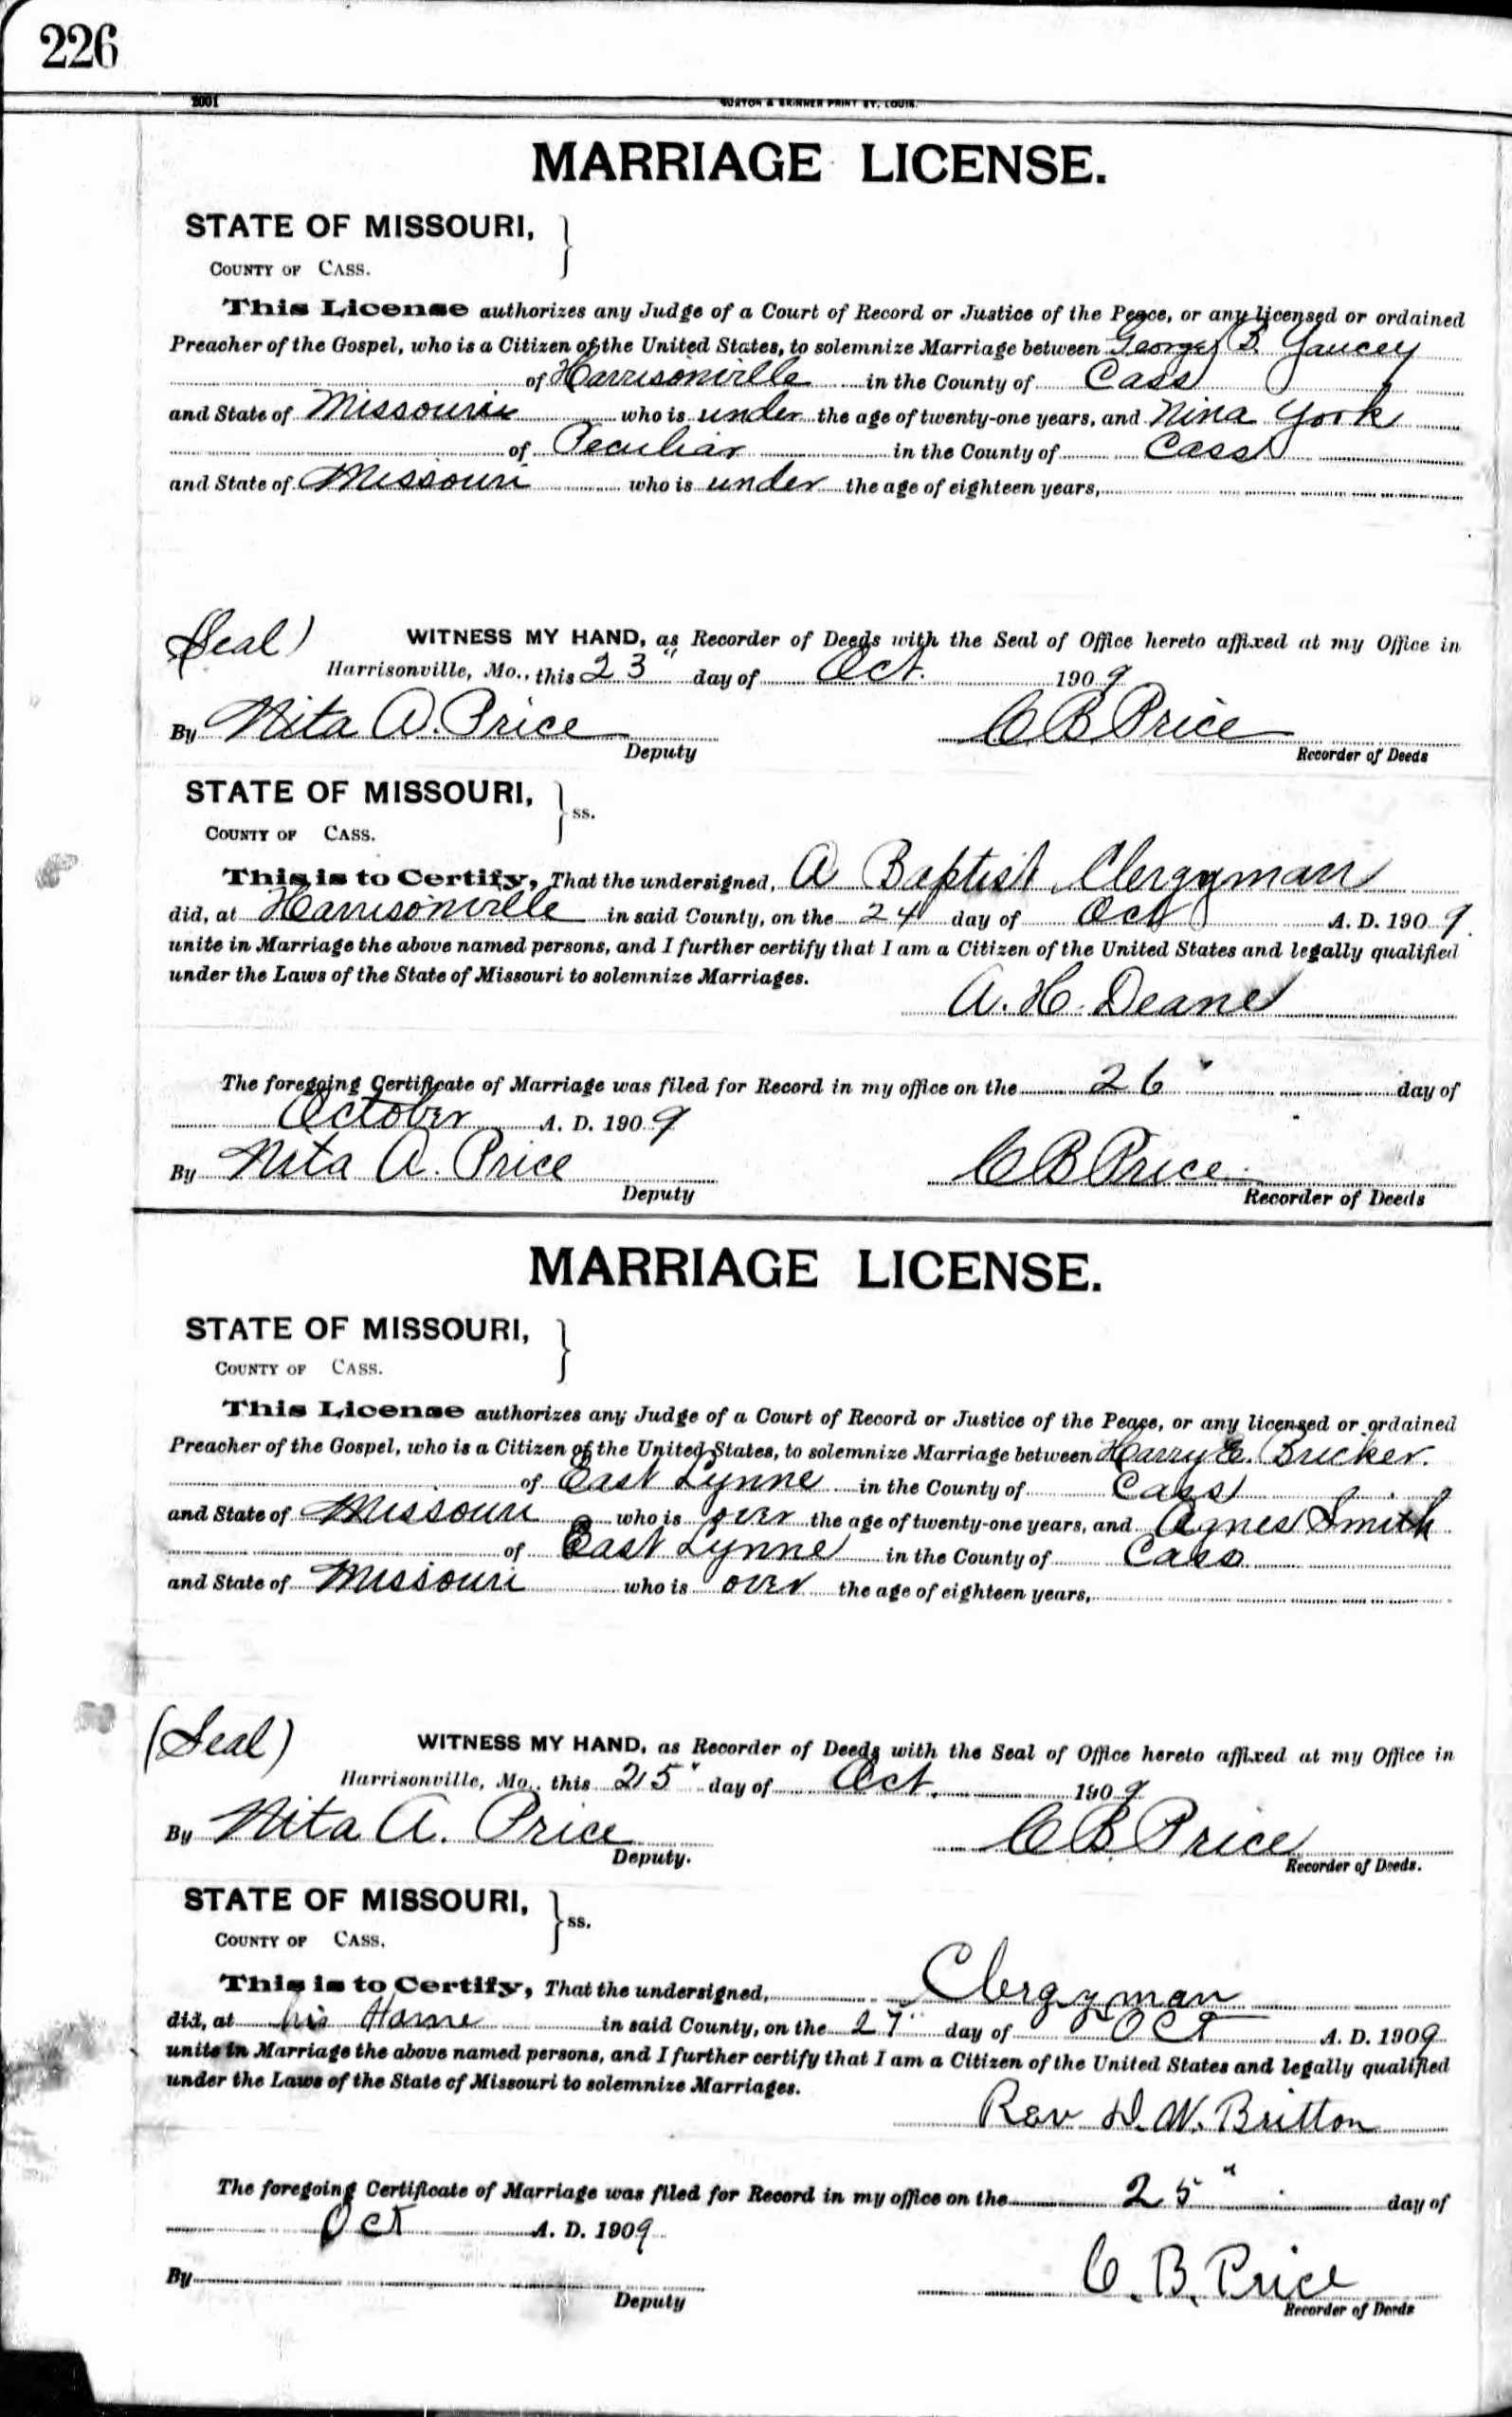 226
2001
BUXTON & SKINNER PRINT ST. LOUIS.
MARRIAGE LICENSE.
STATE OF MISSOURI,
COUNTY OF CASS.
This License authorizes any Judge of a Court of Record or Justice of the Peace, or any licensed or ordained
Preacher of the Gospel, who is a Citizen of the United States, to solemnize Marriage between George B. Yaucey
of Harrisonville in the County of Cass
and State of Missouri who is under the age of twenty-one years, and Nina York
of Peculiar in the County of Cass
and State of Missouri who is under the age of eighteen years,
(Seal) WITNESS MY HAND, as Recorder of Deeds with the Seal of Office hereto affixed at my Office in
Harrisonville, Mo., this 23" day of Oct. 1909
By Nita A. Price C B Price
Deputy Recorder of Deeds
STATE OF MISSOURI, ss.
COUNTY OF CASS.
This is to Certify, That the undersigned, A Baptist Clergyman
did, at Harrisonville in said County, on the 24 day of Oct A. D. 1909.
unite in Marriage the above named persons, and I further certify that I am a Citizen of the United States and legally qualified
under the Laws of the State of Missouri to solemnize Marriages.
A. H. Deane
The foregoing Certificate of Marriage was filed for Record in my office on the 26" day of
October A. D. 1909
By Nita A. Price C B Price
Deputy Recorder of Deeds
MARRIAGE LICENSE.
STATE OF MISSOURI,
COUNTY OF CASS.
This License authorizes any Judge of a Court of Record or Justice of the Peace, or any licensed or ordained
Preacher of the Gospel, who is a Citizen of the United States, to solemnize Marriage between Harry E. Bricker.
of East Lynne in the County of Cass
and State of Missouri who is over the age of twenty-one years, and Agnes Smith
of East Lynne in the County of Cass
and State of Missouri who is over the age of eighteen years,
(Seal) WITNESS MY HAND, as Recorder of Deeds with the Seal of Office hereto affixed at my Office in
Harrisonville, Mo., this 25" day of Oct. 1909
By Nita A. Price C B Price
Deputy. Recorder of Deeds.
STATE OF MISSOURI, ss.
COUNTY OF CASS.
This is to Certify, That the undersigned, Clergyman
did, at his Home in said County, on the 27" day of Oct A. D. 1909
unite in Marriage the above named persons, and I further certify that I am a Citizen of the United States and legally qualified
under the Laws of the State of Missouri to solemnize Marriages.
Rev D. W. Britton
The foregoing Certificate of Marriage was filed for Record in my office on the 25" day of
Oct A. D. 1909
By C. B. Price
Deputy Recorder of Deeds